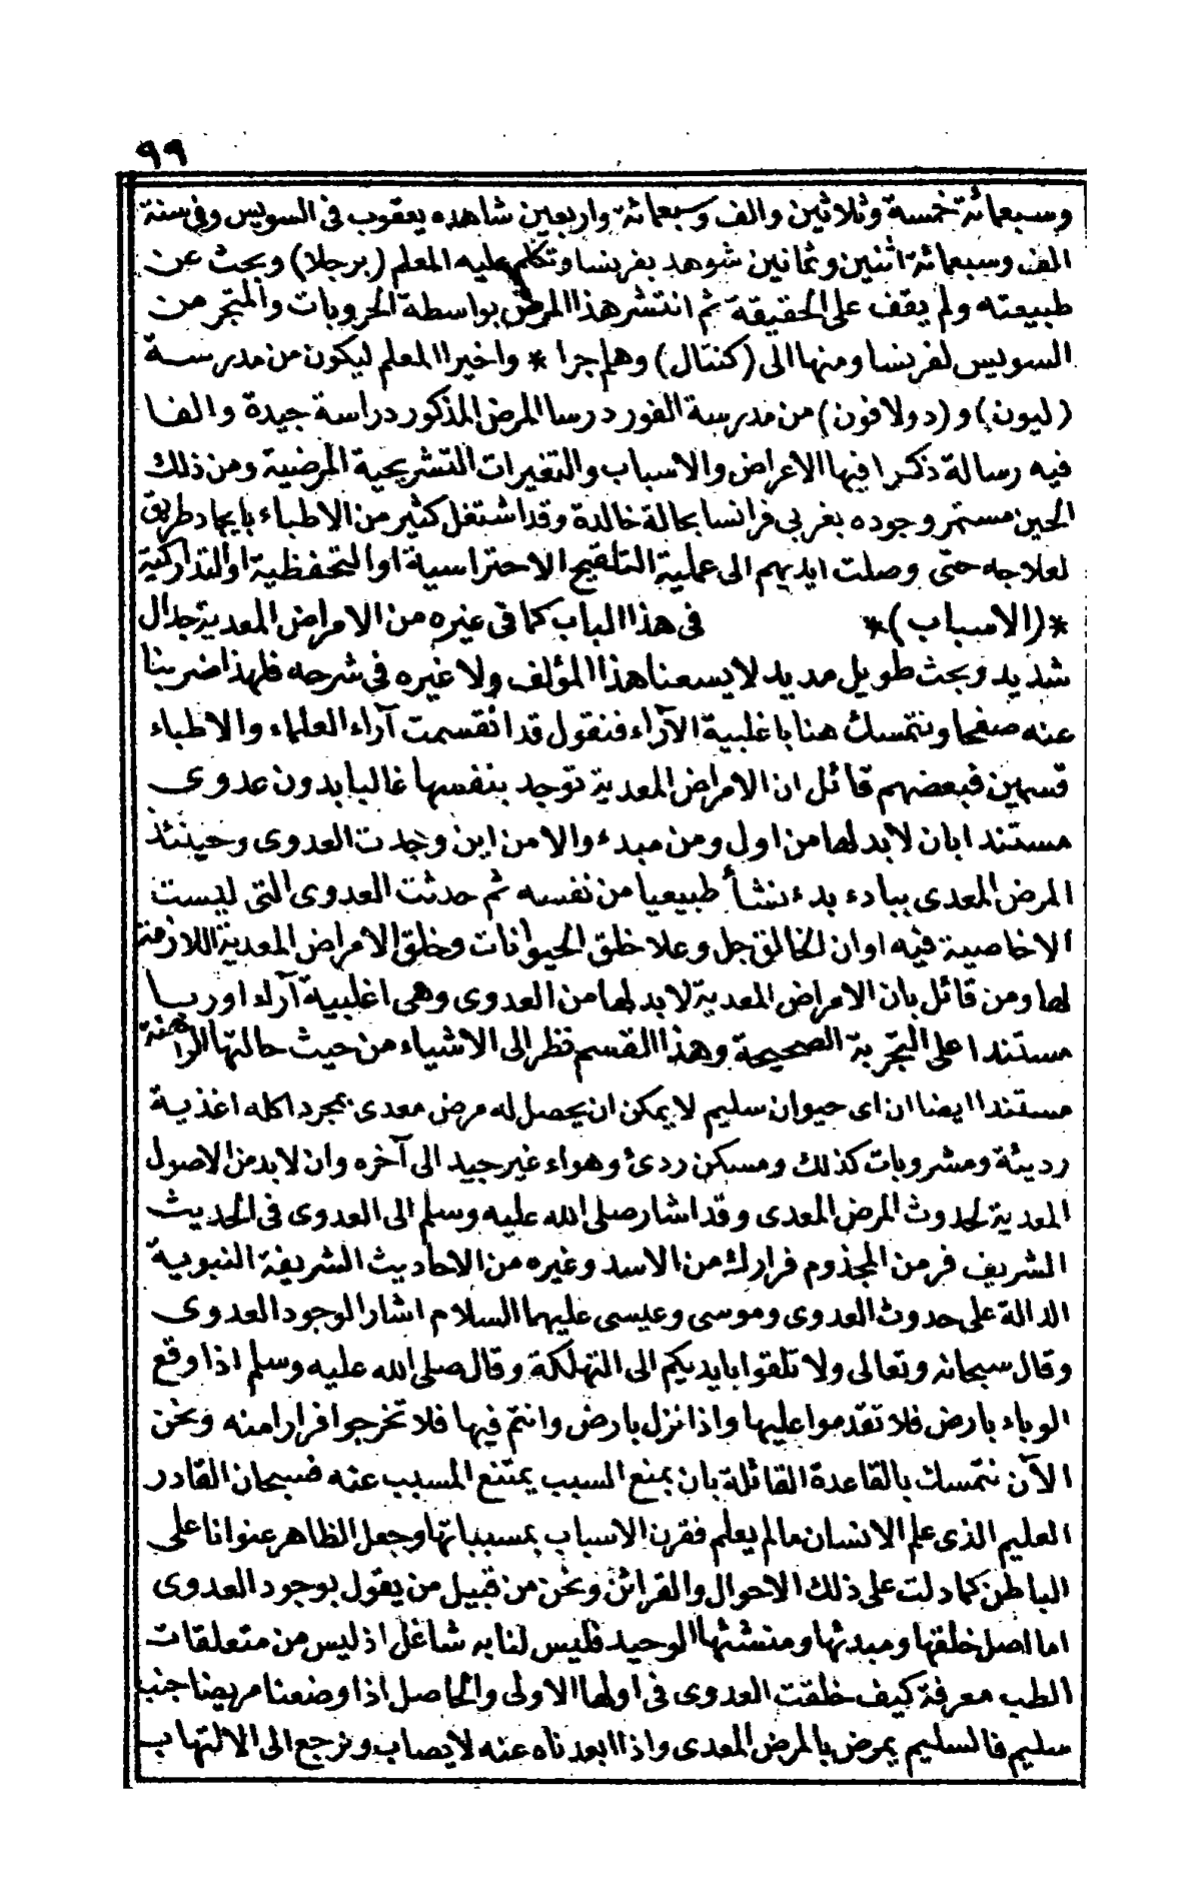 ٩٩
وسبعمائة خمسة وثلاثين والف وسبعمائة واربعين شاهده يعقوب فى السويس وفى سنة
الف وسبعمائة اثنين وثمانين شوهد بفرنسا وتكلم عليه المعلم (برجلا) وبحث عن
طبيعته ولم يقف على الحقيقة ثم انتشر هذا المرض بواسطة الحروبات والمتجر من
السويس لفرنسا ومنها الى (كنتال) وهلم جرا * واخيرا المعلم ليكون من مدرسة
(ليون) و (دولافون) من مدرسة الفور درسا المرض المذكور دراسة جيدة والفا
فيه رسالة ذكرا فيها الاعراض والاسباب والتغيرات التشريحية المرضية ومن ذلك
الحين مستمر وجوده بغربى فرانسا بحالة خالدة وقد اشتغل كثير من الاطباء بايجاد طريق
لعلاجه حتى وصلت ايديهم الى عملية التلقيح الاحتراسية او التحفظية او التداركية
*(الاسباب)* فى هذا الباب كما فى غيره من الامراض المعدية جدال
شديد وبحث طويل مديد لا يسعنا هذا المؤلف ولا غيره فى شرحه فلهذا ضربنا
عنه صفحا ونتمسك هنا باغلبية الآراء فنقول قد انقسمت آراء العلماء والاطباء
قسمين فبعضهم قائل ان الامراض المعدية توجد بنفسها غالبا بدون عدوى
مستندا بان لابد لها من اول ومن مبدء والا من اين وجدت العدوى وحينئذ
المرض المعدى ببادء بدء نشأ طبيعيا من نفسه ثم حدثت العدوى التى ليست
الا خاصية فيه او ان الخالق جل وعلا خلق الحيوانات وخلق الامراض المعدية اللازمة
لها ومن قائل بان الامراض المعدية لابد لها من العدوى وهى اغلبية آراء اوربا
مستندا على التجربة الصحيحة وهذا القسم نظر الى الاشياء من حيث حالتها الراهنة
مستندا ايضا ان اى حيوان سليم لا يمكن ان يحصل له مرض معدى بمجرد اكله اغذية
رديئة ومشروبات كذلك ومسكن ردئ وهواء غير جيد الى آخره وان لابد من الاصول
المعدية لحدوث المرض المعدى وقد اشار صلى الله عليه وسلم الى العدوى فى الحديث
الشريف فر من المجذوم فرارك من الاسد وغيره من الاحاديث الشريفة النبوية
الدالة على حدوث العدوى وموسى وعيسى عليهما السلام اشارا لوجود العدوى
وقال سبحانه وتعالى ولا تلقوا بايديكم الى التهلكة وقال صلى الله عليه وسلم اذا وقع
الوباء بارض فلا تقدموا عليها واذا نزل بارض وانتم فيها فلا تخرجوا فرارا منه ونحن
الآن نتمسك بالقاعدة القائلة بان بمنع السبب يمتنع المسبب عنه فسبحان القادر
العليم الذى علم الانسان مالم يعلم فقرن الاسباب بمسبباتها وجعل الظاهر عنوانا على
الباطن كما دلت على ذلك الاحوال والقرائن ونحن من قبيل من يقول بوجود العدوى
اما اصل خلقها ومبدئها ومنشئها الوحيد فليس لنا به شاغل اذ ليس من متعلقات
الطب معرفة كيف خلقت العدوى فى اولها الاولى والحاصل اذا وضعنا مريضا جنب
سليم فالسليم يمرض بالمرض المعدى واذا ابعدناه عنه لا يصاب ونرجع الى الالتهاب